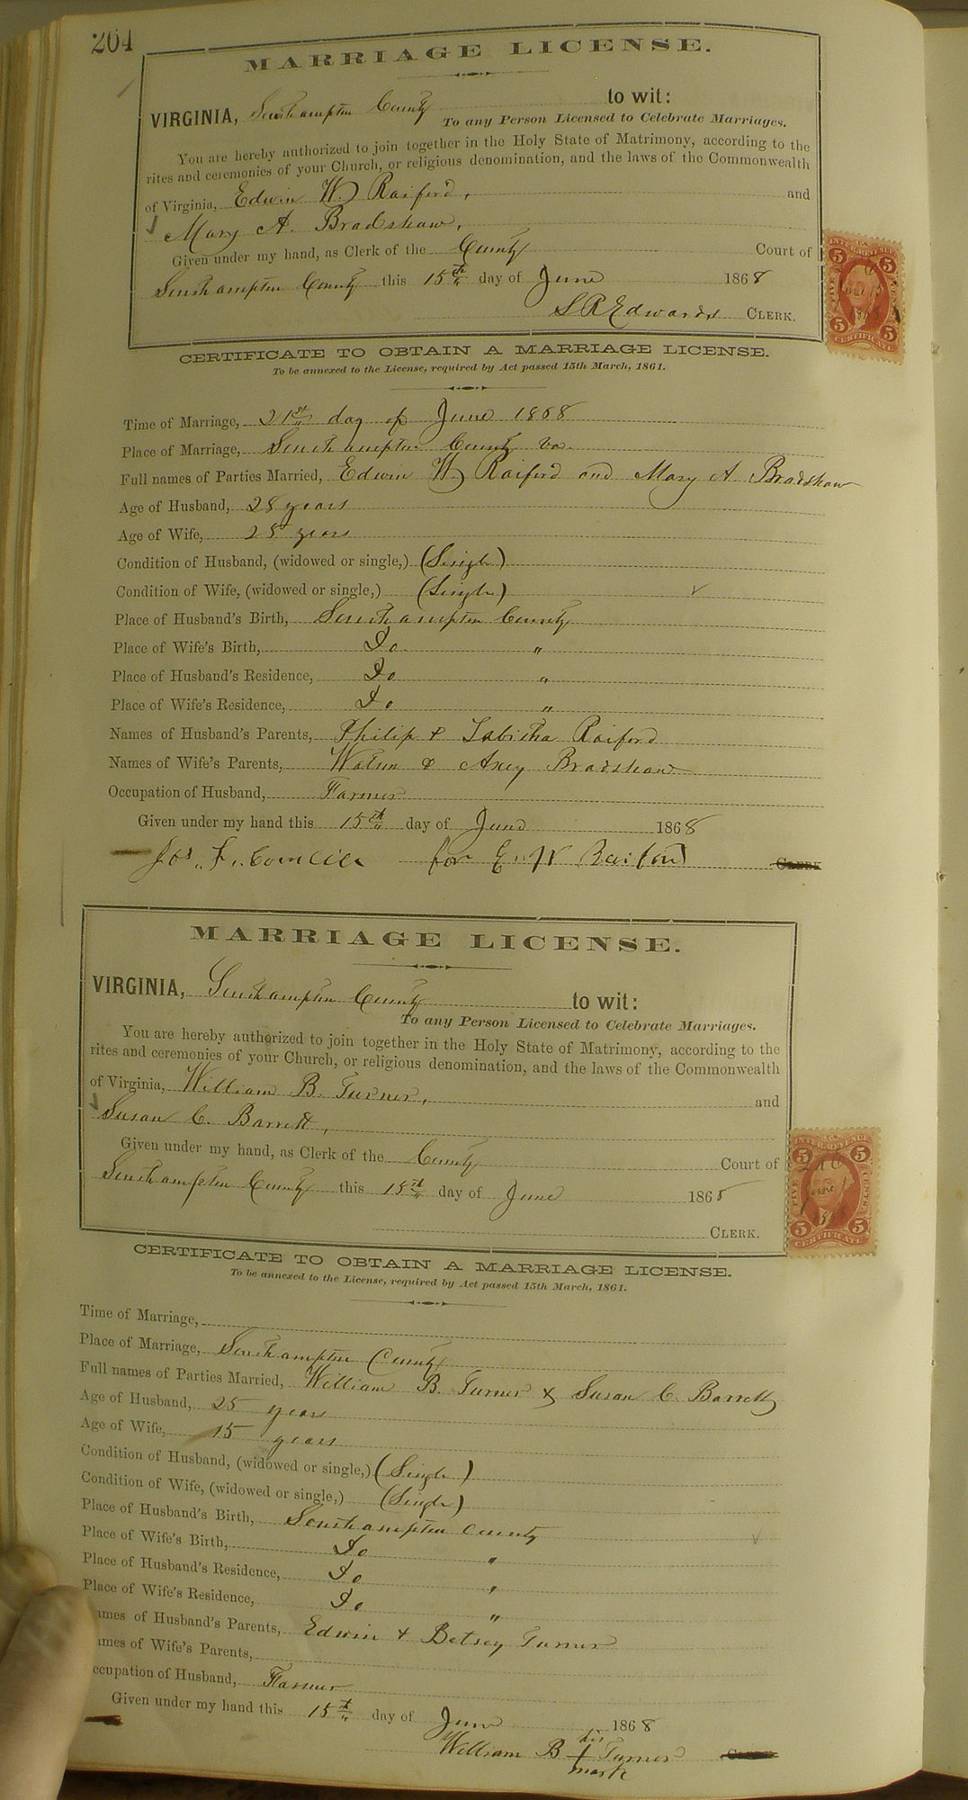 204
MARRIAGE LICENSE.
VIRGINIA, Southampton County to wit:
To any Person Licensed to Celebrate Marriages.
You are hereby authorized to join together in the Holy State of Matrimony, according to the
rites and ceremonies of your Church, or religious denomination, and the laws of the Commonwealth
of Virginia, Edwin W. Raiford, and
Mary A. Bradshaw,
Given under my hand, as Clerk of the County Court of
Southampton County this 15th day of June 1868
S R Edwards CLERK.
CERTIFICATE TO OBTAIN A MARRIAGE LICENSE.
To be annexed to the License, required by Act passed 15th March, 1861.
Time of Marriage, 21st day of June 1868
Place of Marriage, Southampton County Va.
Full names of Parties Married, Edwin W. Raiford and Mary A. Bradshaw
Age of Husband, 28 years
Age of Wife, 25 years
Condition of Husband, (widowed or single,) (Single)
Condition of Wife, (widowed or single,) (Single)
Place of Husband's Birth, Southampton County
Place of Wife's Birth, Do "
Place of Husband's Residence, Do "
Place of Wife's Residence, Do "
Names of Husband's Parents, Philip & Tabitha Raiford
Names of Wife's Parents, & Axey Bradshaw
Occupation of Husband, Farmer
Given under my hand this 15th day of June 1868
Jos. for E. W Raiford CLERK
MARRIAGE LICENSE.
VIRGINIA, Southampton County to wit:
To any Person Licensed to Celebrate Marriages.
You are hereby authorized to join together in the Holy State of Matrimony, according to the
rites and ceremonies of your Church, or religious denomination, and the laws of the Commonwealth
of Virginia, William B. Turner, and
Susan C. Barrett,
Given under my hand, as Clerk of the County Court of
Southampton County this 15th day of June 1868
CLERK.
CERTIFICATE TO OBTAIN A MARRIAGE LICENSE.
To be annexed to the License, required by Act passed 15th March, 1861.
Time of Marriage,
Place of Marriage, Southampton County
Full names of Parties Married, William B. Turner & Susan C. Barrett
Age of Husband, 25 years
Age of Wife, 15 years
Condition of Husband, (widowed or single,) (Single)
Condition of Wife, (widowed or single,) (Single)
Place of Husband's Birth, Southampton County
Place of Wife's Birth, Do "
Place of Husband's Residence, Do "
Place of Wife's Residence, Do "
ames of Husband's Parents, Edwin & Betsey Turner
ames of Wife's Parents,
ccupation of Husband, Farmer
Given under my hand this 15th day of June 1868
his
William B + Turner
mark